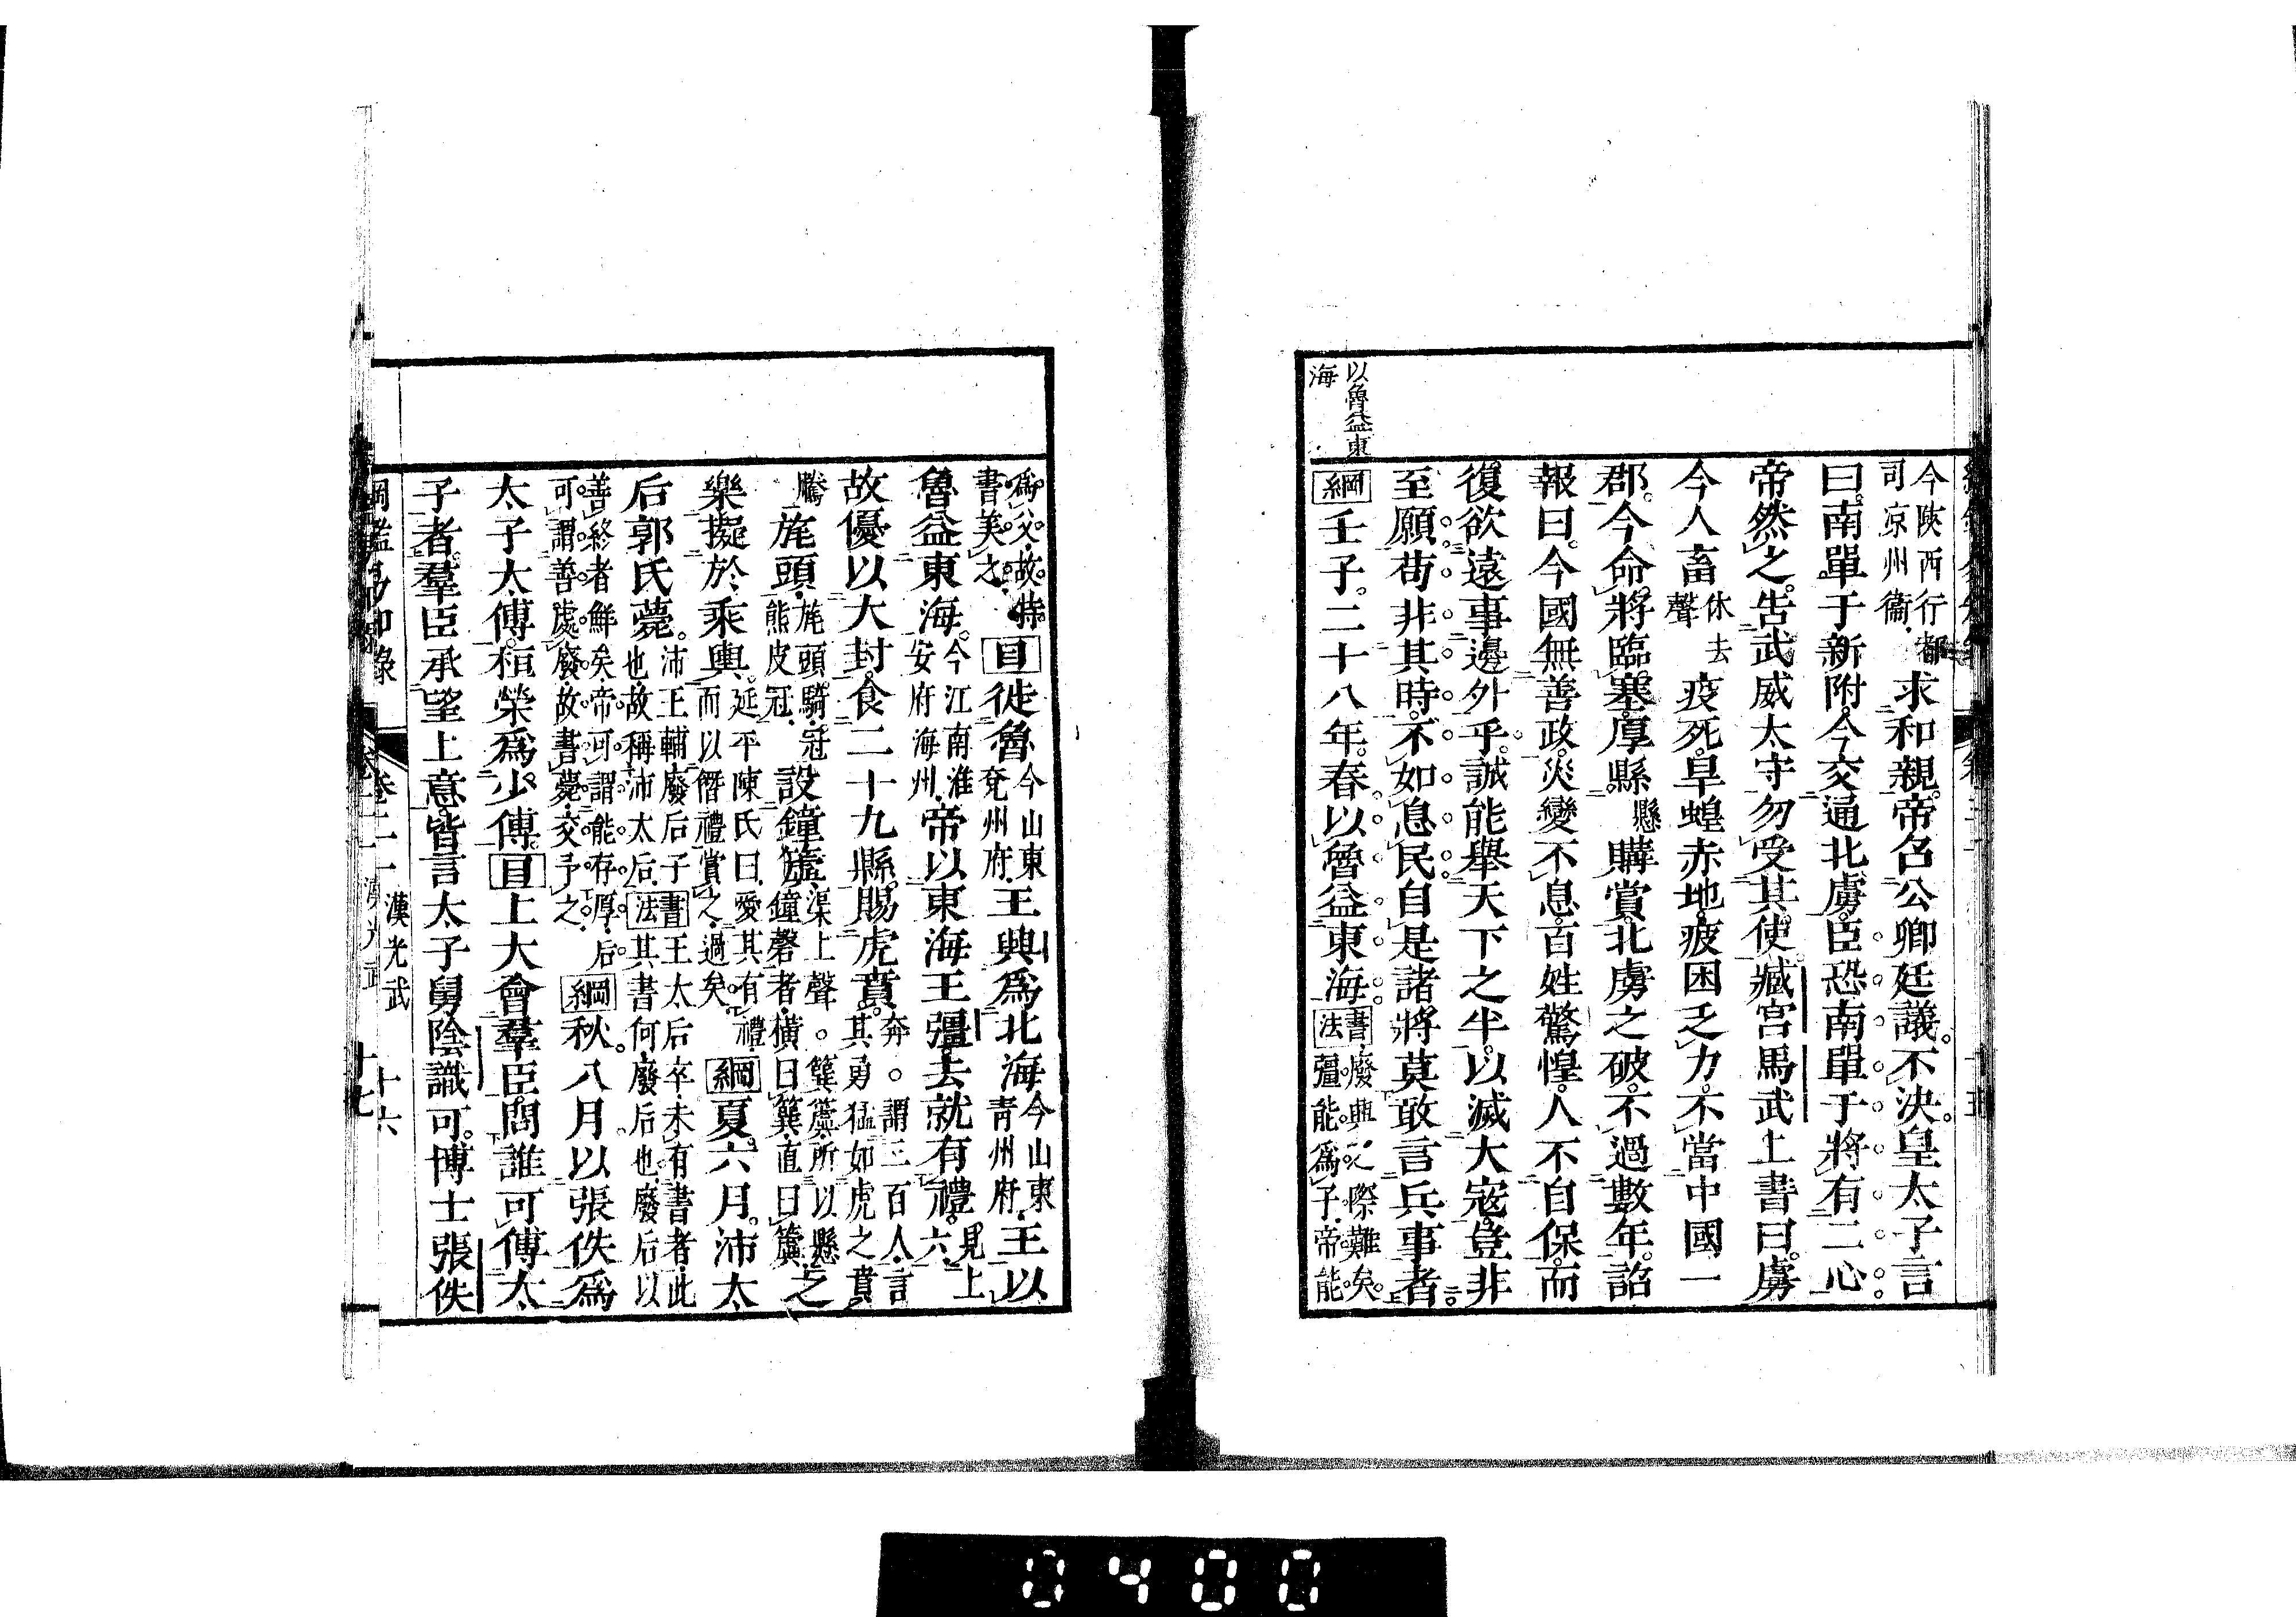 以魯益東
海
今陝西行都
司京州衞
求和親帝召公卿廷議不決皇太子言
曰南單于新附今交通北虜臣恐南單于將有二心
帝然之告武威太守勿受其使臧宮馬武上書曰虜
今人畜
休去
聲
疫死旱蝗赤地疲困乏力不當中國一
郡今命將臨塞厚縣
懸
購賞北虜之破不過數年詔
報曰今國無善政災變不息百姓驚惶人不自保而
復欲遠事邊外乎誠能舉天下之半以滅大寇豈非
至願苟非其時不如息民自是諸將莫敢言兵事者
綱壬子二十八年春以魯益東海
書法
廢興之際難矣
彊能爲子帝能
爲父故特
書美之
目徙魯
今山東
兗州府
王興爲北海
今山東
青州府
王以
魯益東海
今江南淮
安府海州
帝以東海王彊去就有禮
見上
六
故優以大封食二十九縣賜虎賁
奔○謂三百人言
其勇猛如虎之賁
騰
旄頭
旄頭騎冠
熊皮冠
設鐘簴
渠上聲○簨簴所以懸
鐘磬者橫曰簨直曰簴
之
樂擬於乘輿
延平陳氏曰愛其有禮
而以僭禮賞之過矣
綱夏六月沛太
后郭氏薨
沛王輔廢后子
也故稱沛太后
書法
王太后卒未有書者此
其書何廢后也廢后以
善終者鮮矣帝可謂能存厚后
可謂善處廢故書薨交予之
綱秋八月以張佚爲
太子太傅桓榮爲少傅目上大會羣臣問誰可傅太
子者羣臣承望上意皆言太子舅陰識可博士張佚
綱鑑易知錄
卷二一
漢光武
十六
十七
0400